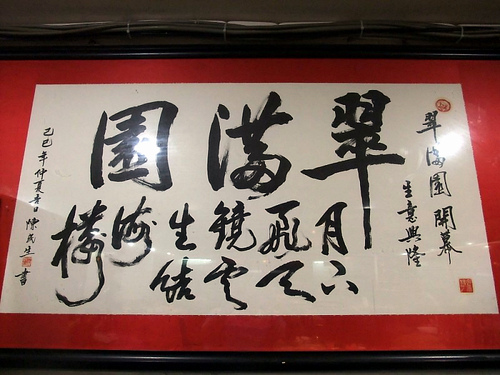 翠滿園開幕
生意興隆
翠滿園
月下
飛天
鏡雲
生結
海
樓
己巳年仲夏吉日 陳生書